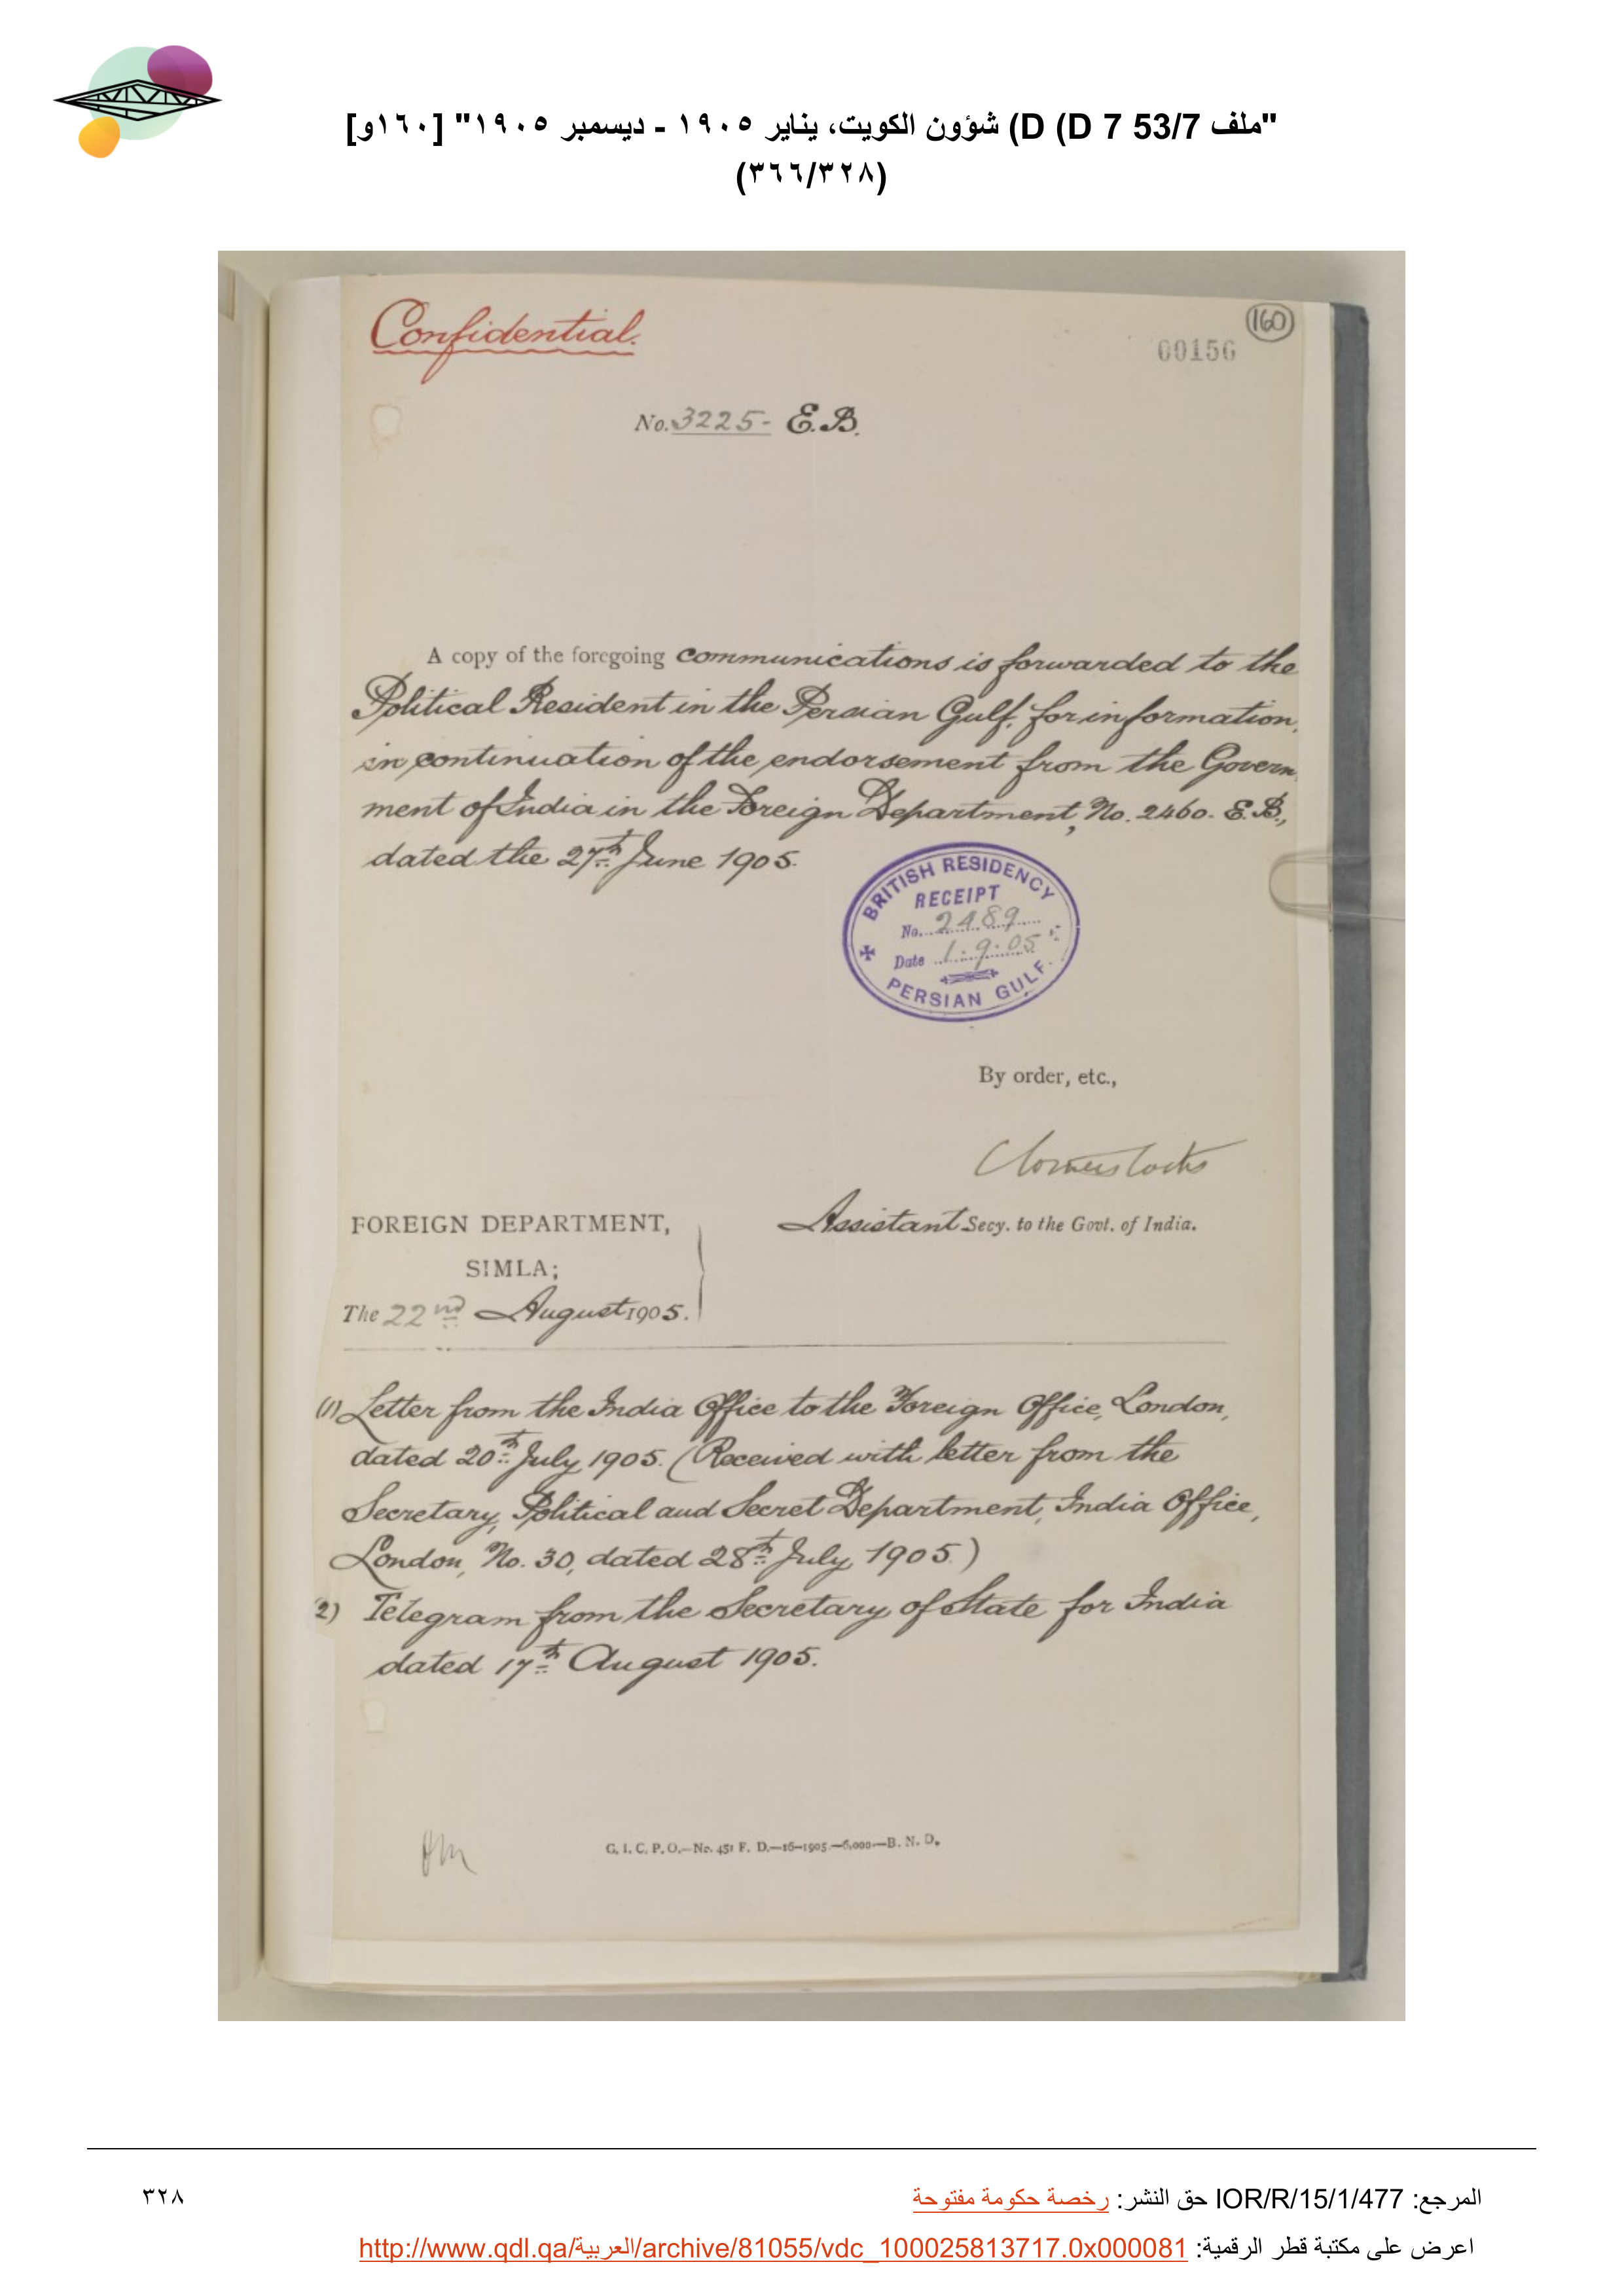 "ملف 53/7 D 7) D) شؤون الكويت، يناير ١٩٠٥ - ديسمبر ١٩٠٥" [١٦٠و]
(٣٦٦/٣٢٨)
Confidential.
160
00156
No. 3225- E.B.
A copy of the foregoing communications is forwarded to the
Political Resident in the Persian Gulf, for information,
in continuation of the endorsement from the Govern
ment of India in the Foreign Department, No. 2460. E.B.,
dated the 27th June 1905.
BRITISH RESIDENCY
RECEIPT
No. 2489
Date 1.9.05
PERSIAN GULF.
By order, etc.,
Assistant Secy. to the Govt. of India.
FOREIGN DEPARTMENT,
SIMLA;
The 22nd August 1905.
(1) Letter from the India Office to the Foreign Office, London,
dated 20th July 1905. (Received with letter from the
Secretary, Political and Secret Department, India Office,
London, No. 30, dated 28th July 1905.)
2) Telegram from the Secretary of State for India
dated 17th August 1905.
G. I. C. P. O.—No. 451 F. D.—16-1905.—6,000—B. N. D.
المرجع: IOR/R/15/1/477 حق النشر: رخصة حكومة مفتوحة
٣٢٨
اعرض على مكتبة قطر الرقمية: http://www.qdl.qa/العربية/archive/81055/vdc_100025813717.0x000081